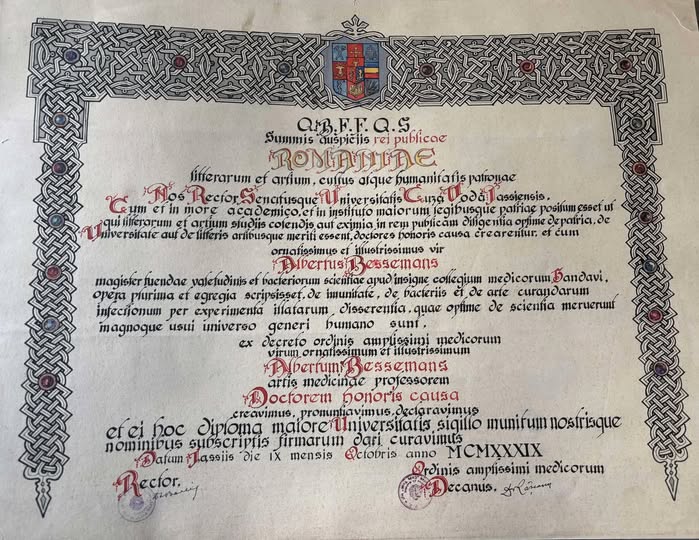 Q.B.F.F.Q.S
Summis auspiciis rei publicae
ROMANIAE
litterarum et artium, cultus atque humanitatis patronae
Nos Rector, Senatusque Universitatis Cuza Vodă Iassiensis.
Cum et in more academico, et in instituto maiorum legibusque patriae positum esset ut
qui litterarum et artium studiis colendis aut eximia in rem publicam diligentia optime de patria, de
Universitate aut de litteris artibusque meriti essent, doctores honoris causa crearentur, et cum
ornatissimus et illustrissimus vir
Albertus Bessemans
magister tuendae valetudinis et bacteriorum scientiae apud insigne collegium medicorum Gandavi,
opera plurima et egregia scripsisset, de imunitate, de bacteriis et de arte curandarum
infectionum per experimenta illatarum, disserentia, quae optime de scientia meruerunt
magnoque usui universo generi humano sunt,
ex decreto ordinis amplissimi medicorum
virum ornatissimum et illustrissimum
Albertum Bessemans
artis medicinae professorem
Doctorem honoris causa
creavimus, pronuntiavimus, declaravimus
et ei hoc diploma maiore Universitatis sigillo munitum nostrisque
nominibus subscriptis firmarum dari curavimus
Datum Iassiis die IX mensis Octobris anno MCMXXXIX
Ordinis amplissimi medicorum
Rector, Decanus.